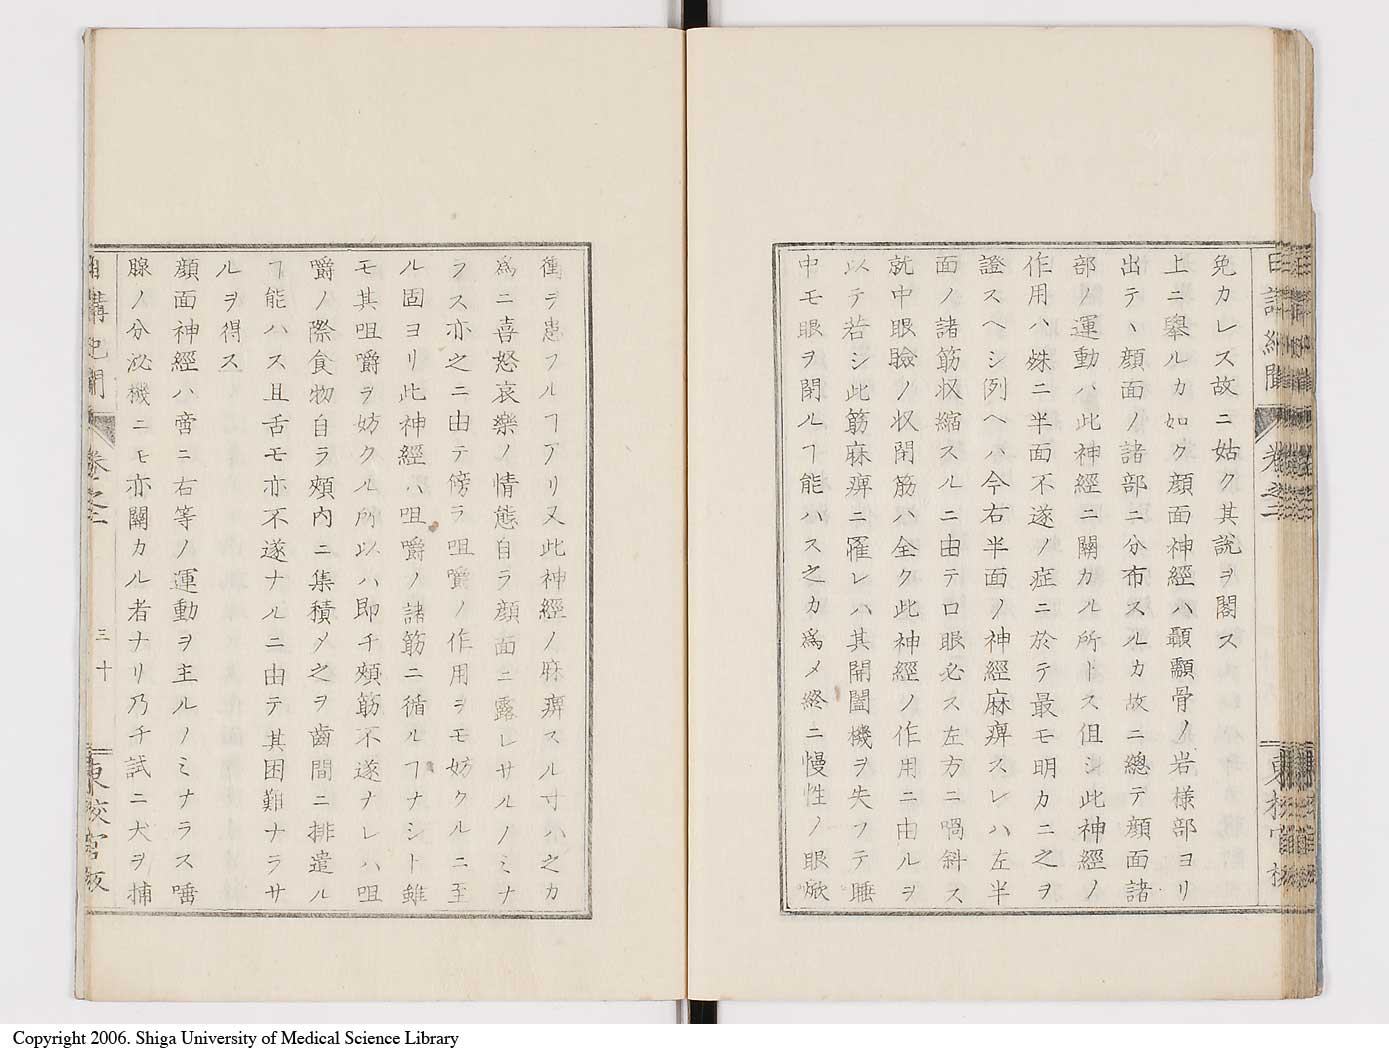 免カレス故ニ姑ク其説ヲ閣ス
上ニ擧ルカ如ク顔面神經ハ顳顬骨ノ岩樣部ヨリ
出テヽ顔面ノ諸部ニ分布スルカ故ニ總テ顔面諸
部ノ運動ハ此神經ニ關カル所トス但シ此神經ノ
作用ハ殊ニ半面不遂ノ症ニ於テ最モ明カニ之ヲ
證スヘシ例ヘハ今右半面ノ神經麻痹スレハ左半
面ノ諸筋收縮スルニ由テ口眼必ス左方ニ喎斜ス
就中眼瞼ノ收閉筋ハ全ク此神經ノ作用ニ由ルヲ
以テ若シ此筋麻痹ニ罹レハ其開闔機ヲ失フテ睡
中モ眼ヲ閉ルヿ能ハス之カ爲メ終ニ慢性ノ眼焮
日講紀聞
卷之二
東校官板
衝ヲ患フルヿアリ又此神經ノ麻痹スル寸ハ之カ
爲ニ喜怒哀樂ノ情態自ラ顔面ニ露レサルノミナ
ラス亦之ニ由テ傍ラ咀嚼ノ作用ヲモ妨クルニ至
ル固ヨリ此神經ハ咀嚼ノ諸筋ニ循ルヿナシト雖
モ其咀嚼ヲ妨クル所以ハ即チ頰筋不遂ナレハ咀
嚼ノ際食物自ラ頰内ニ集積メ之ヲ齒間ニ排遣ル
ヿ能ハス且舌モ亦不遂ナルニ由テ其困難ナラサ
ルヲ得ス
顔面神經ハ啻ニ右等ノ運動ヲ主ルノミナラス唾
腺ノ分泌機ニモ亦關カル者ナリ乃チ試ニ犬ヲ捕
日講紀聞
卷之二
三十
東校官板
Copyright 2006. Shiga University of Medical Science Library